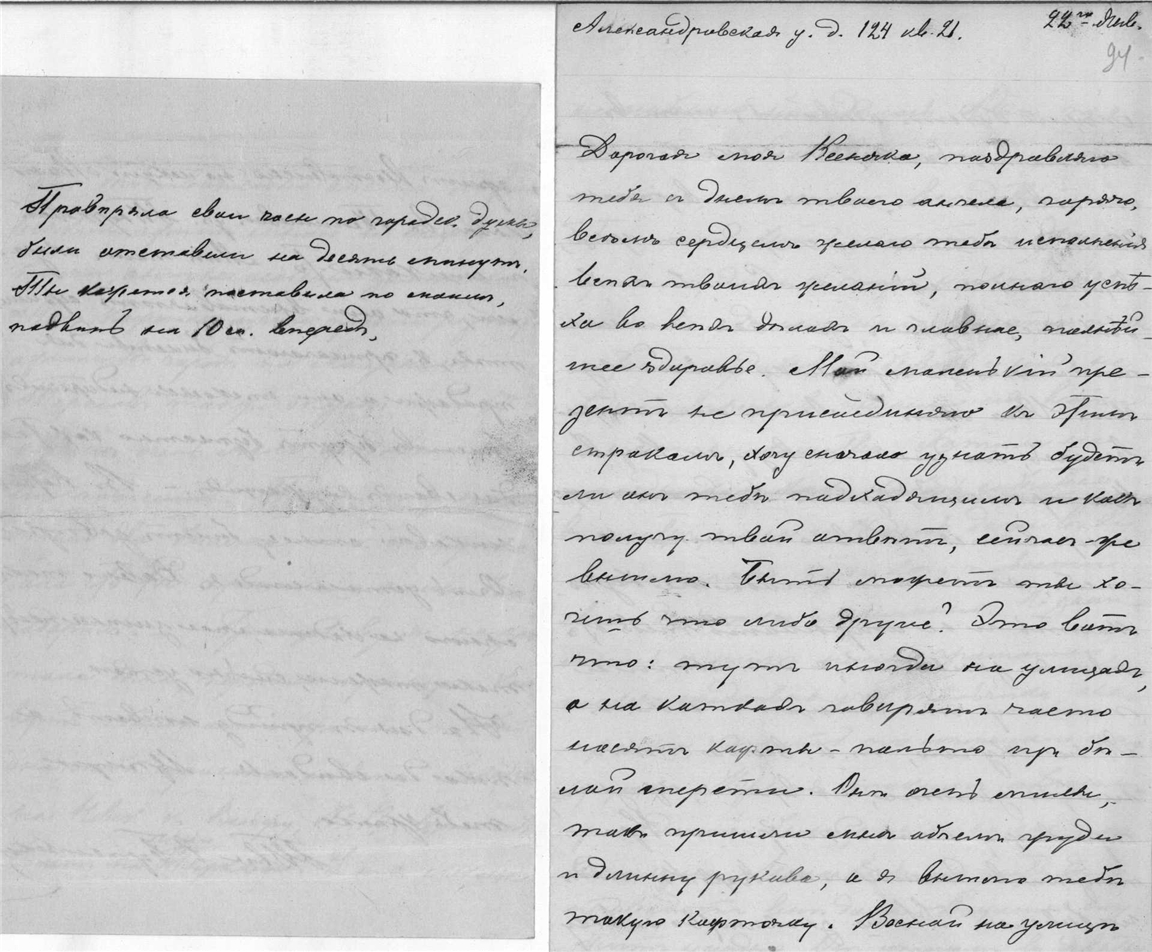 Провѣряла свои часы по городск. думы,
были отставши на десять минутъ.
Ты кажется поставила по моимъ,
подвинь на 10 м. впередъ.
Александровская у. д. 124 кв. 21.
22го Янв.
94
Дорогая моя Ксенюка, поздравляю
тебя съ днемъ твоего ангела, горячо,
всѣмъ сердцемъ желаю тебѣ исполненія
всѣхъ твоихъ желаній, полнаго успѣ-
ха во всѣхъ дѣлахъ и главное, полнѣй-
шее здоровье. Мой маленькій пре-
зентъ не присоединяю къ этимъ
строкамъ, хочу сначала узнать будетъ
ли онъ тебѣ подходящимъ и какъ
получу твой отвѣтъ, сейчасъ-же
вышлю. Быть можетъ ты хо-
чешь что либо другое? Это вотъ
что: тутъ иногда на улицахъ,
а на каткахъ говорятъ часто
носятъ кофты - пальто изъ бѣ-
лой шерсти. Онѣ очень милы,
такъ пришли мнѣ объемъ груди
и длинну рукава, а я вышлю тебѣ
такую кофточку. Весной на улицѣ